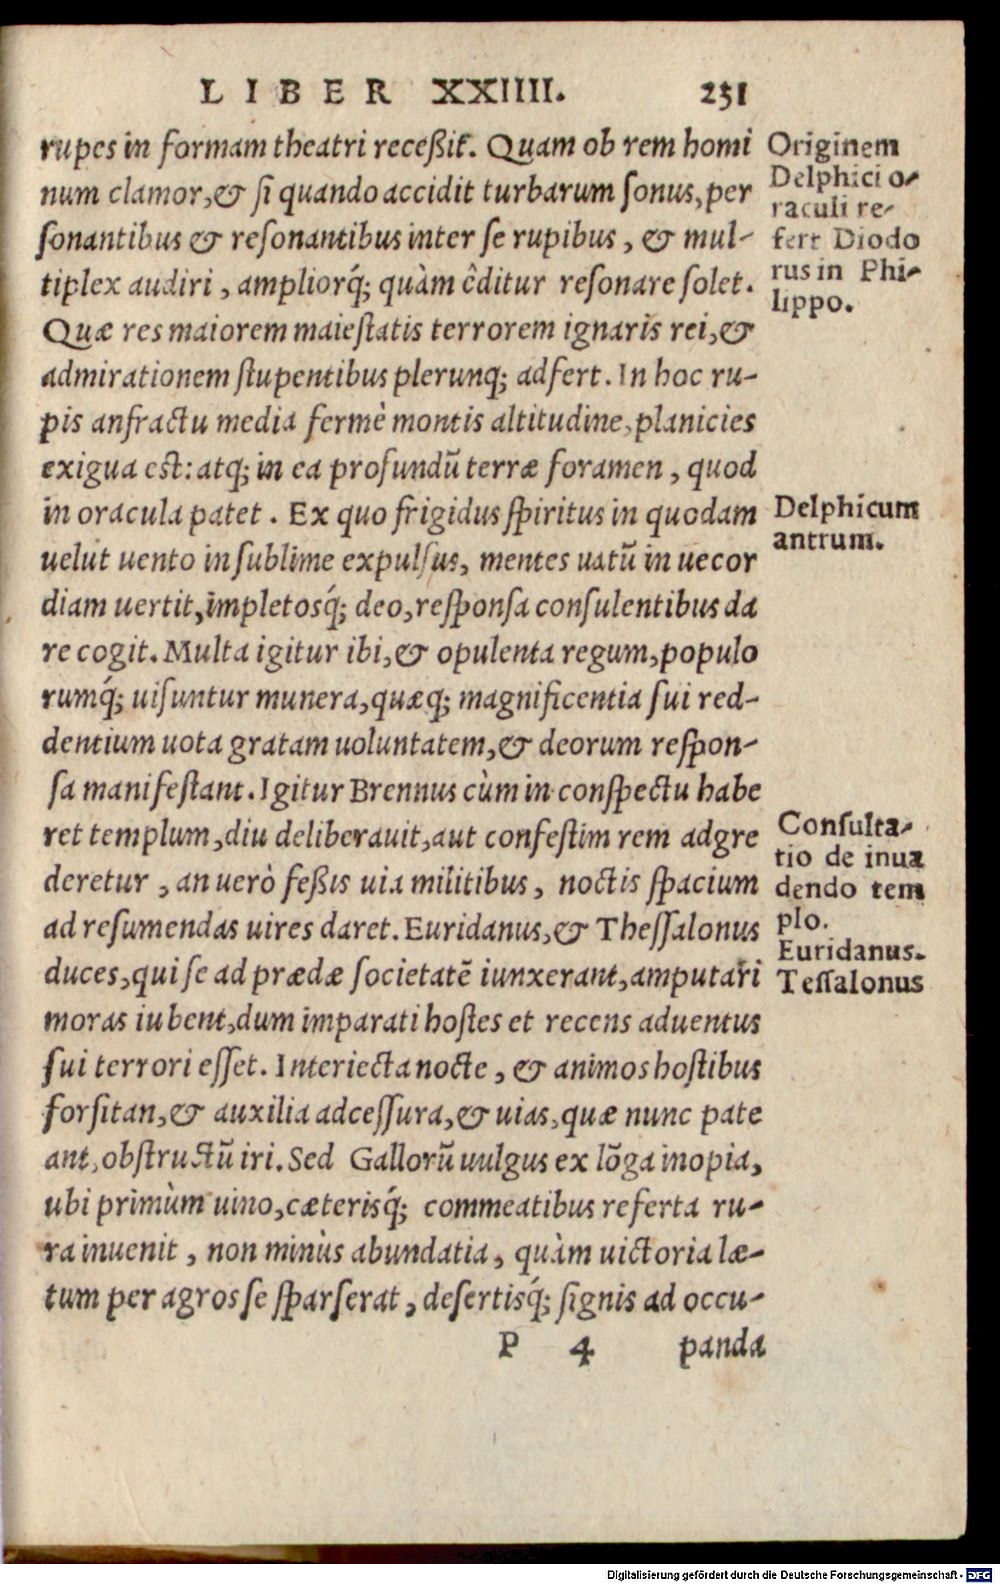 LIBER XXIIII. 231
rupes in formam theatri receßit. Quam ob rem homi
num clamor, & si quando accidit turbarum sonus, per
sonantibus & resonantibus inter se rupibus, & mul-
tiplex audiri, ampliorq́; quàm ĉditur resonare solet.
Quæ res maiorem maiestatis terrorem ignaris rei, &
admirationem stupentibus plerunq; adfert. In hoc ru-
pis anfractu media fermè montis altitudine, planicies
exigua est: atq; in ea profundũ terræ foramen, quod
in oracula patet. Ex quo frigidus spiritus in quodam
uelut uento in sublime expulsus, mentes uatũ in uecor
diam uertit, impletosq́; deo, responsa consulentibus da
re cogit. Multa igitur ibi, & opulenta regum, populo
rumq́; uisuntur munera, quæq; magnificentia sui red-
dentium uota gratam uoluntatem, & deorum respon-
sa manifestant. Igitur Brennus cùm in conspectu habe
ret templum, diu deliberauit, aut confestim rem adgre
deretur, an uerò feßis uia militibus, noctis spacium
ad resumendas uires daret. Euridanus, & Thessalonus
duces, qui se ad prædæ societatẽ iunxerant, amputari
moras iubent, dum imparati hostes et recens aduentus
sui terrori esset. Interiecta nocte, & animos hostibus
forsitan, & auxilia adcessura, & uias, quæ nunc pate
ant, obstructũ iri. Sed Gallorũ uulgus ex lõga inopia,
ubi primùm uino, cæterisq́; commeatibus referta ru-
ra inuenit, non minùs abundatia, quàm uictoria læ-
tum per agros se sparserat, desertisq́; signis ad occu-
P 4 panda
Originem
Delphici o-
raculi re-
fert Diodo
rus in Phi-
lippo.
Delphicum
antrum.
Consulta-
tio de inua
dendo tem
plo.
Euridanus.
Tessalonus
Digitalisierung gefördert durch die Deutsche Forschungsgemeinschaft - DFG